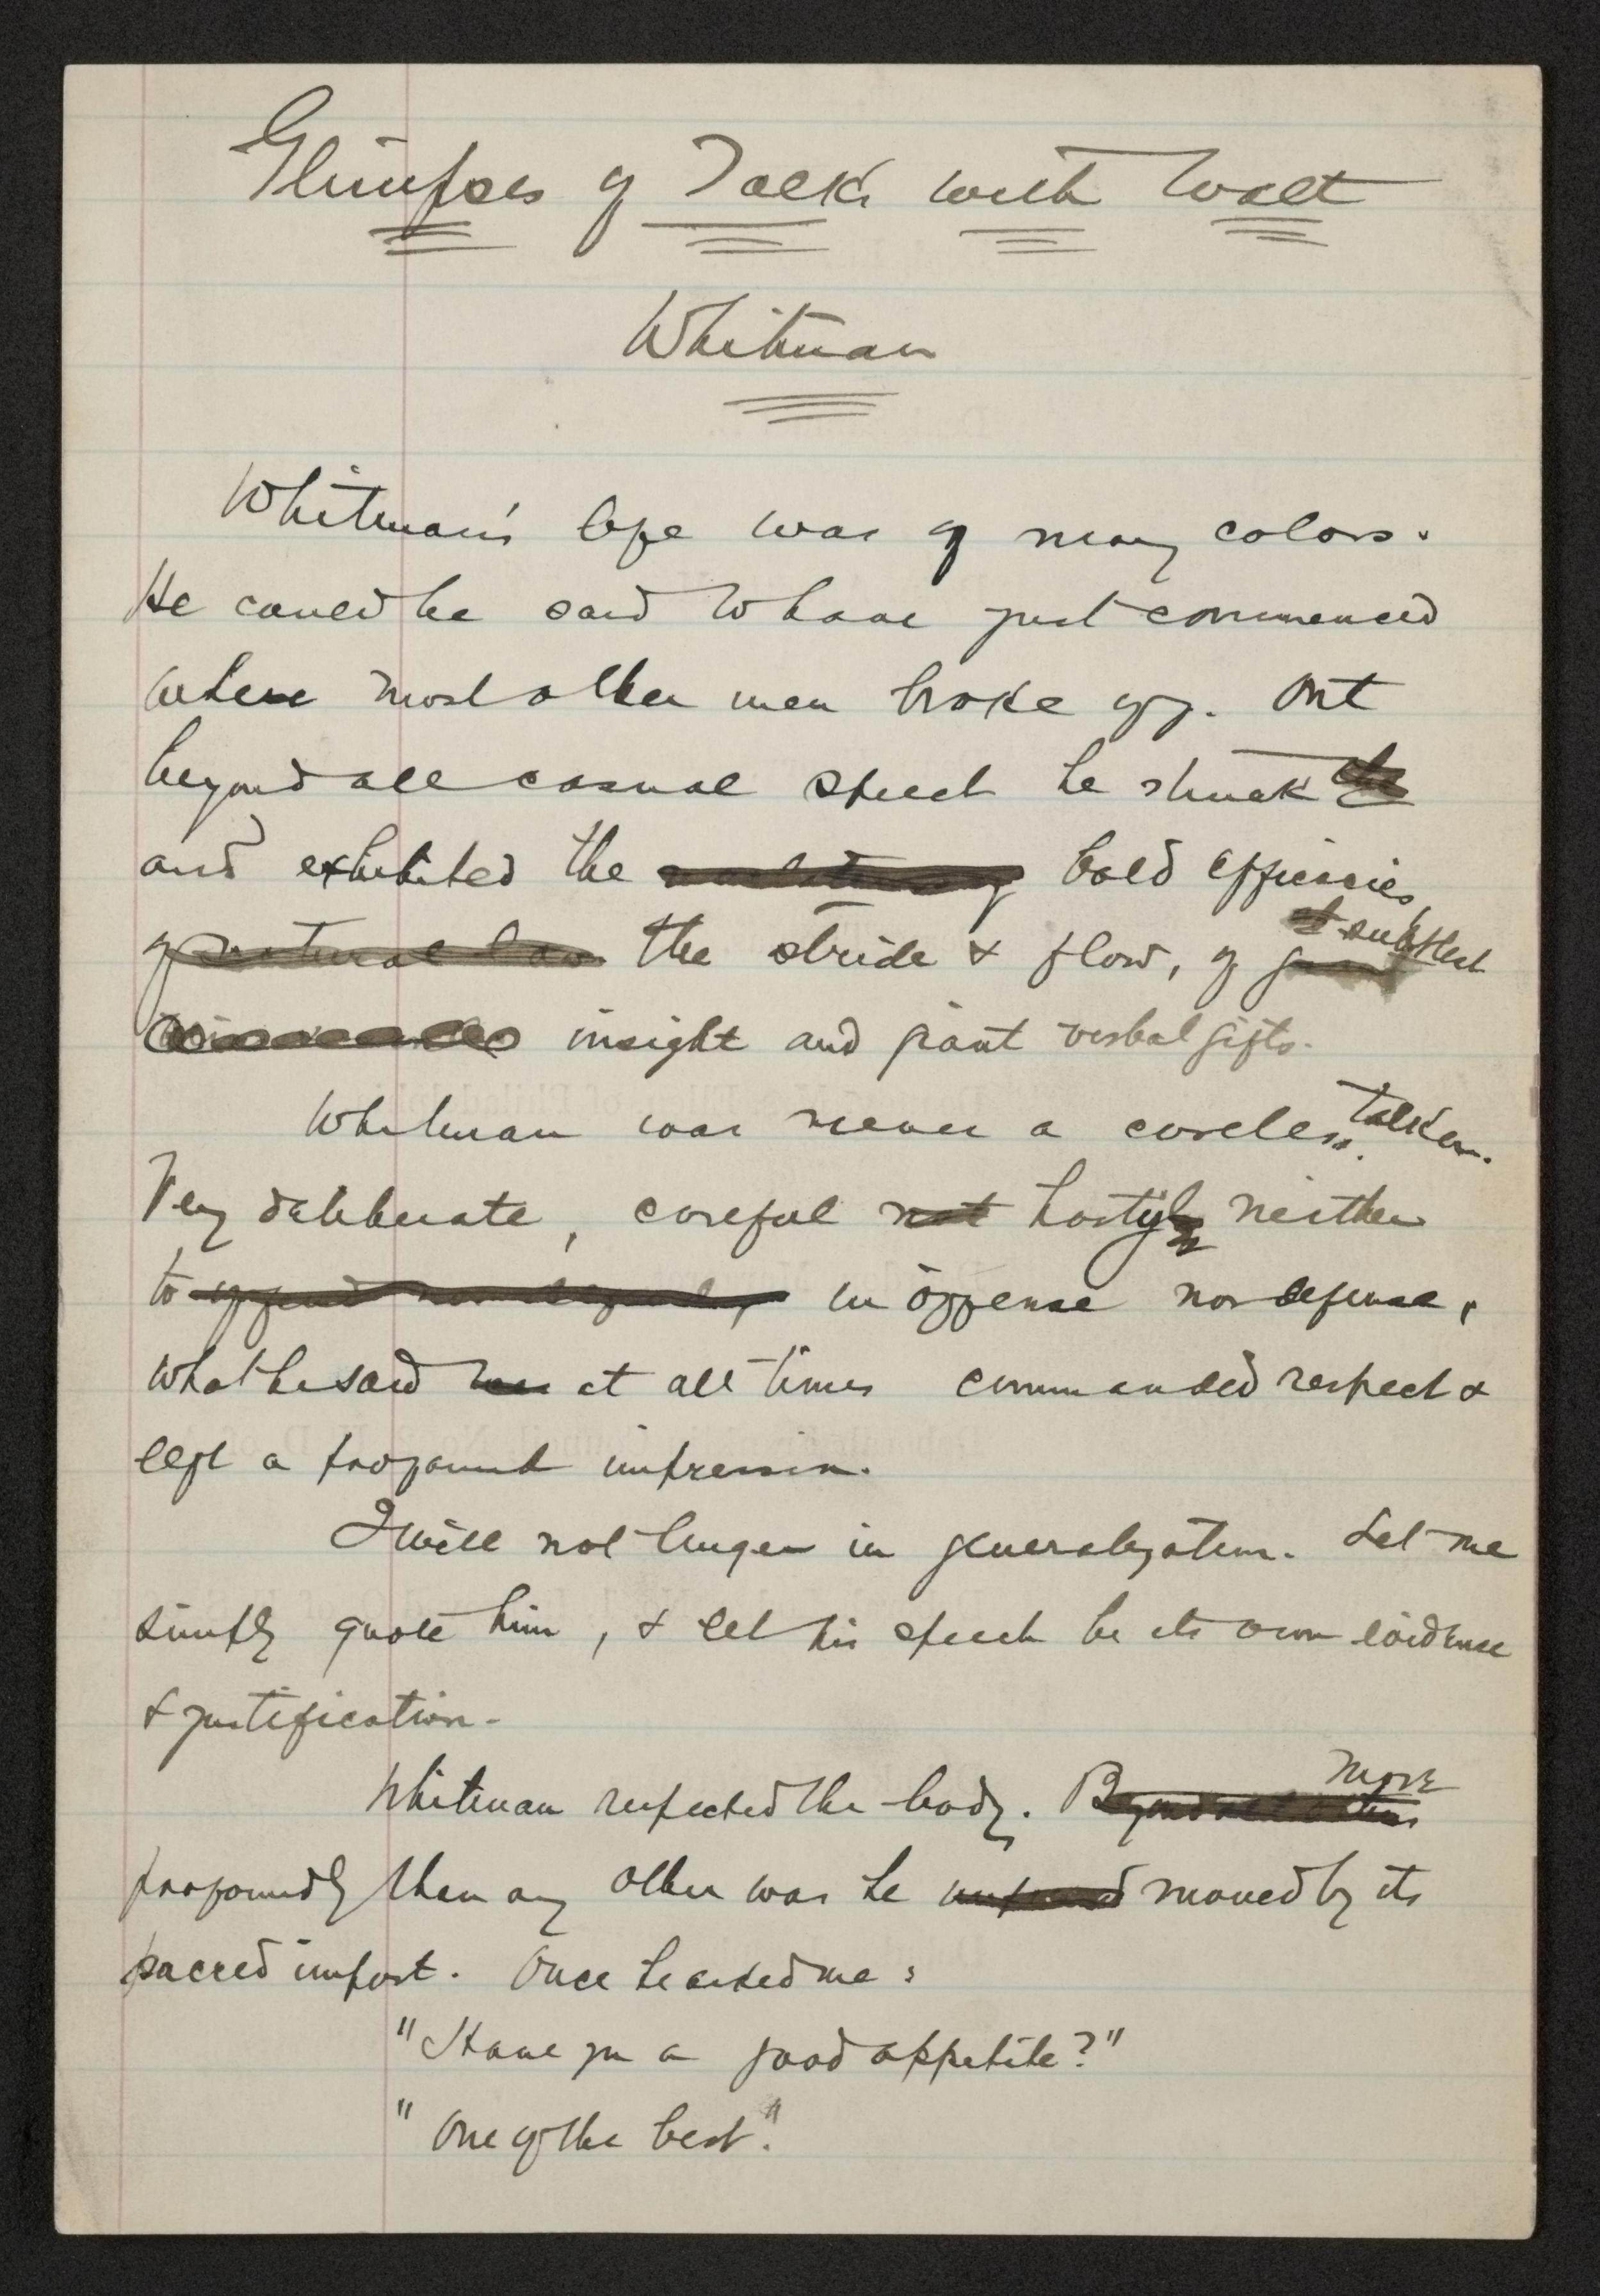 Glimpses of Talks with Walt
Whitman
Whitman's life was of many colors.
He could be said to have just commenced
where most other men broke off. Out
beyond all casual speech he struck
and exhibited the bold efficacies
of natural law the stride & flow, of subtlest
insight and giant verbal gifts.
Whitman was never a careless talker.
Very deliberate, careful not hasty neither
to offend nor defend, in offense nor defense,
what he said was at all times commanded respect &
left a profound impression.
I will not linger in generalization. Let me
simply quote him, & let his speech be its own evidence
& justification.
Whitman respected the body. Beyond all others more
profoundly than any other was he moved by its
sacred import. Once he asked me:
"Have you a good appetite?"
"One of the best."